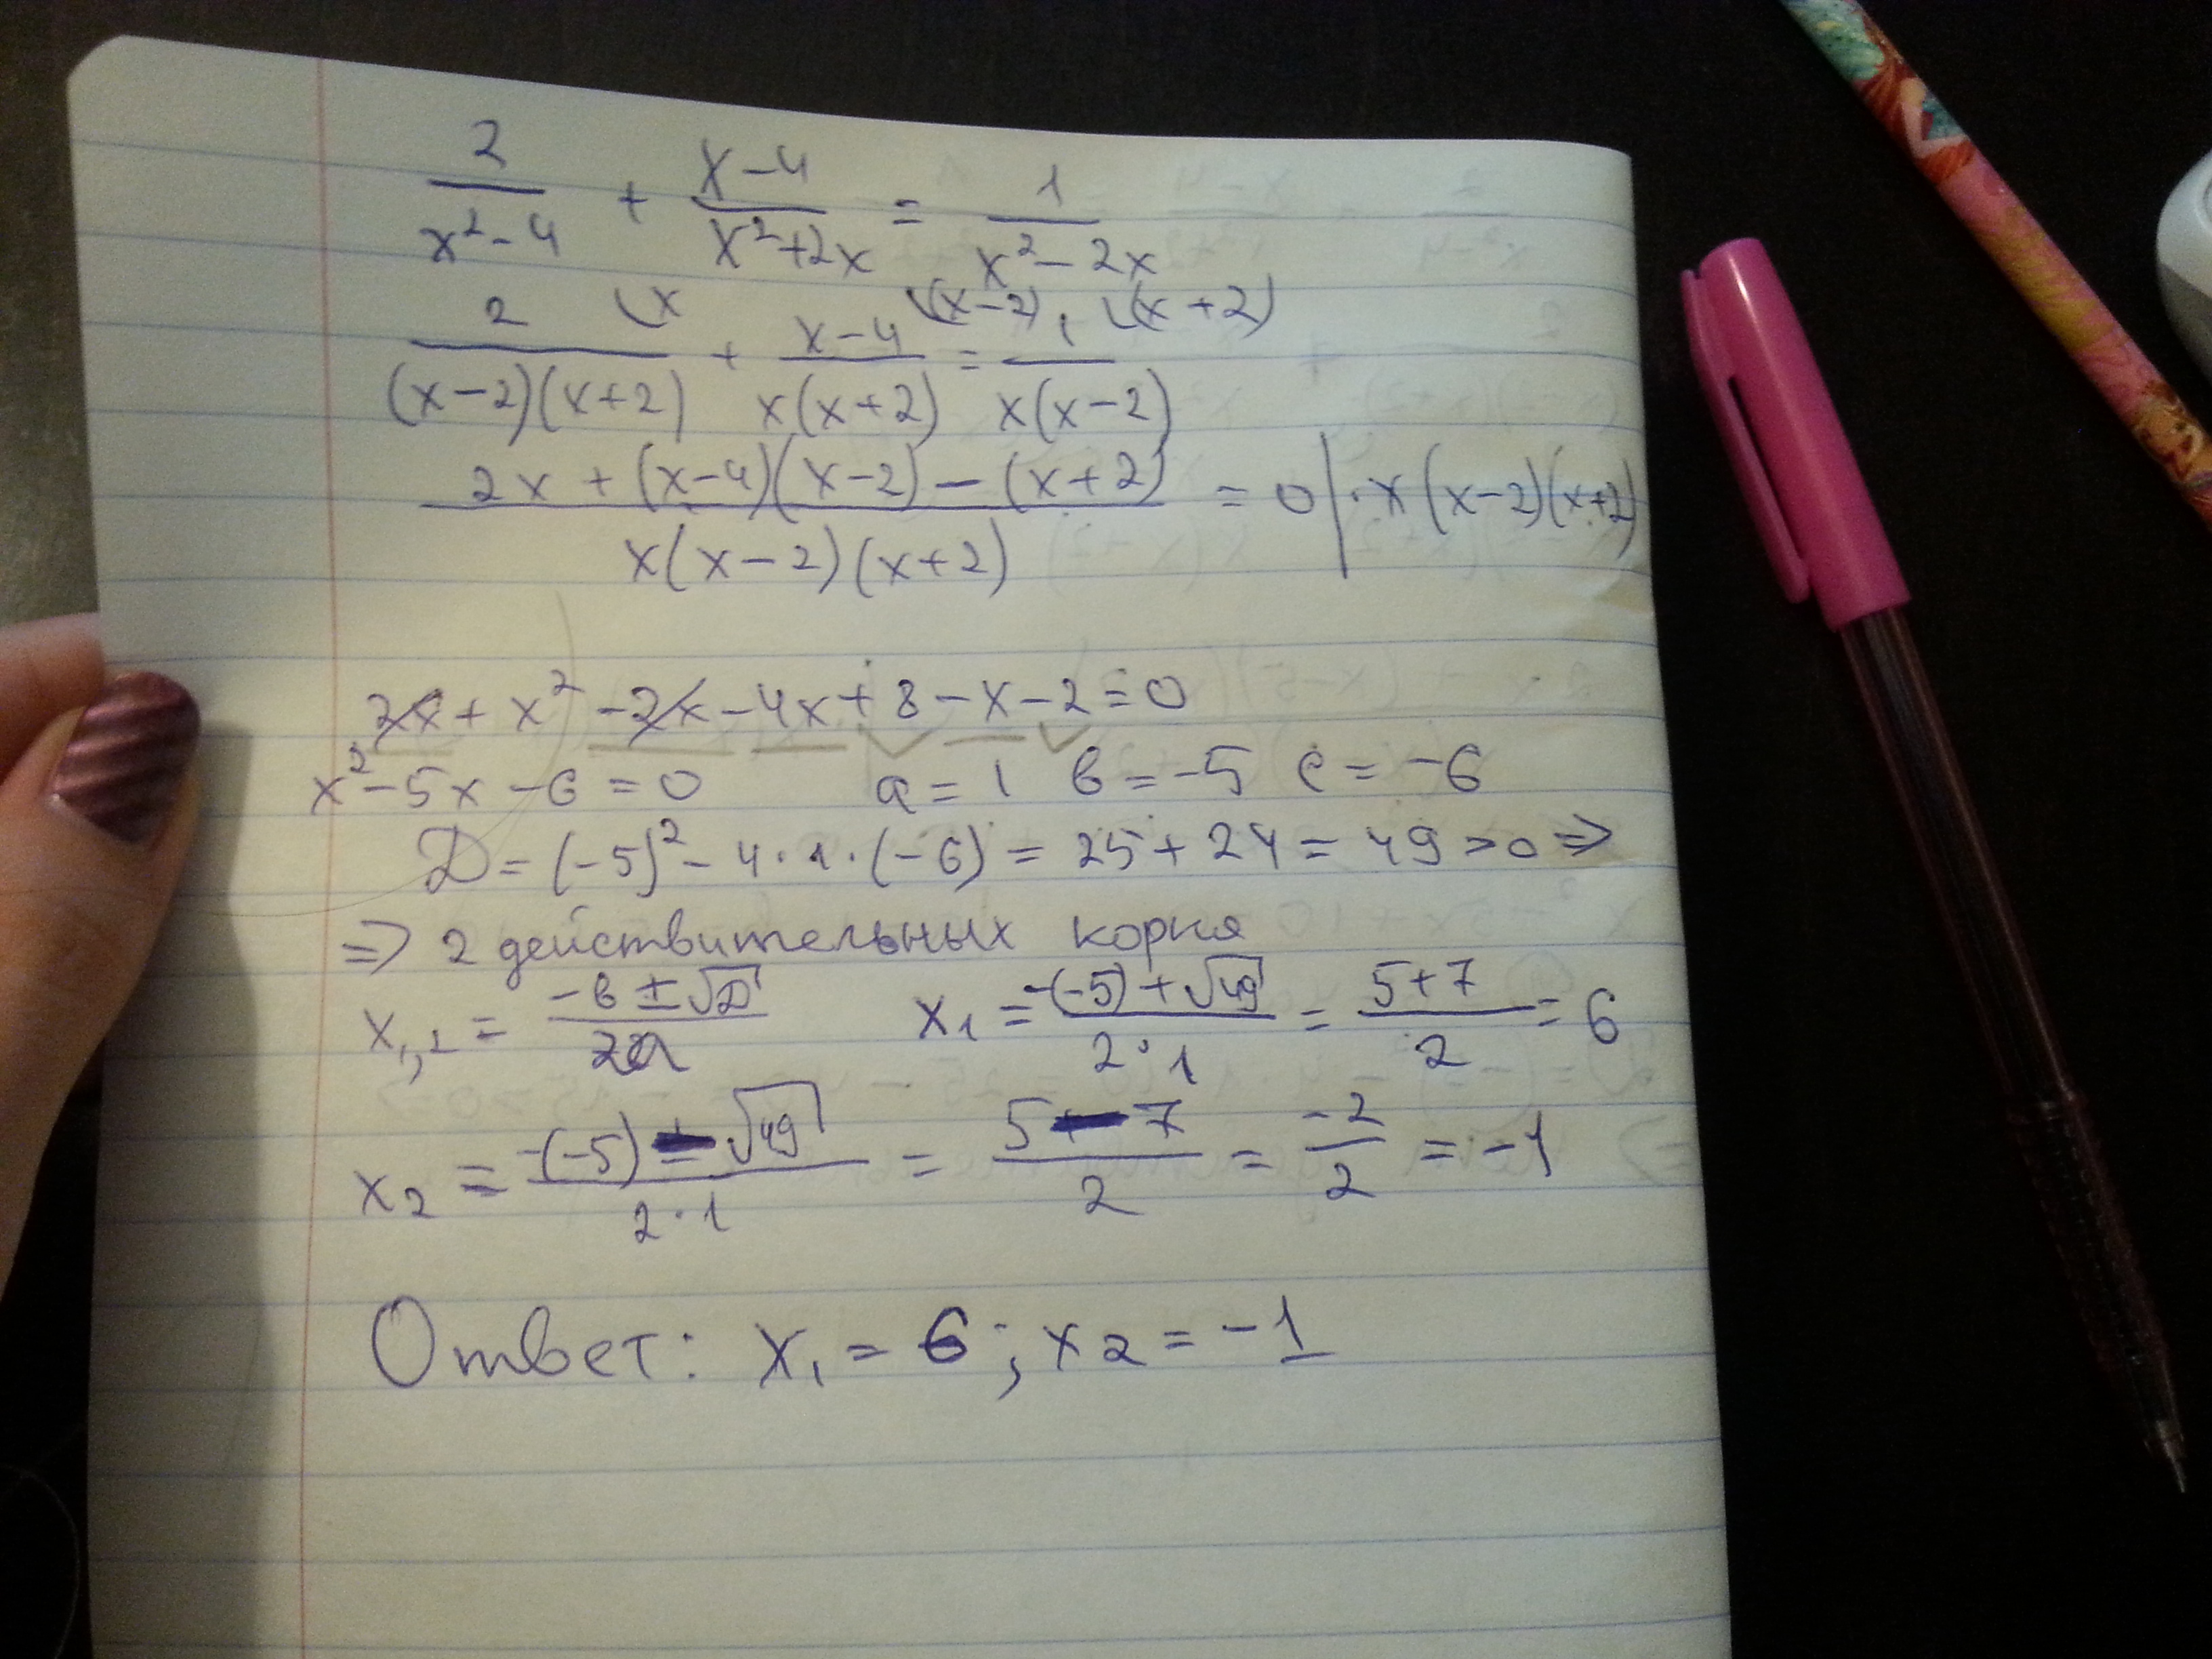 2/(x²-4) + (x-4)/(x²+2x) = 1/(x²-2x)
2\x/((x-2)(x+2)) + (x-4)\(x-2)/(x(x+2)) = 1\(x+2)/(x(x-2))
(2x + (x-4)(x-2) - (x+2))/(x(x-2)(x+2)) = 0 | · x(x-2)(x+2)
2x + x² - 2x - 4x + 8 - x - 2 = 0
x² - 5x - 6 = 0 a = 1 в = -5 c = -6
D = (-5)² - 4 · 1 · (-6) = 25 + 24 = 49 > 0 ⇒
⇒ 2 действительных корня
x₁,₂ = (-в ± √D)/(2a) x₁ = (-(-5) + √49)/(2 · 1) = (5+7)/2 = 6
x₂ = (-(-5) - √49)/(2 · 1) = (5 - 7)/2 = -2/2 = -1
Ответ: x₁ = 6; x₂ = -1